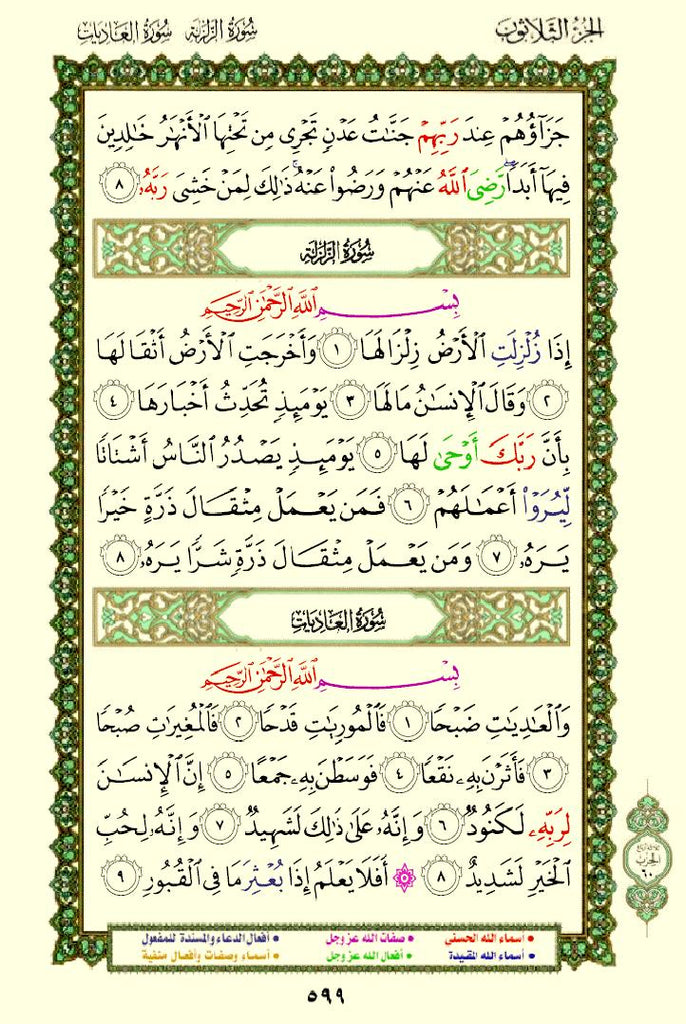 الجزء الثلاثون سورة الزلزلة سورة العاديات
جَزَآؤُهُمْ عِندَ رَبِّهِمْ جَنَّٰتُ عَدْنٍ تَجْرِى مِن تَحْتِهَا ٱلْأَنْهَٰرُ خَٰلِدِينَ
فِيهَآ أَبَدًا ۖ رَّضِىَ ٱللَّهُ عَنْهُمْ وَرَضُوا۟ عَنْهُ ۚ ذَٰلِكَ لِمَنْ خَشِىَ رَبَّهُۥ ٨
سُورَةُ الزَّلْزَلَةِ
بِسْمِ ٱللَّهِ ٱلرَّحْمَٰنِ ٱلرَّحِيمِ
إِذَا زُلْزِلَتِ ٱلْأَرْضُ زِلْزَالَهَا ١ وَأَخْرَجَتِ ٱلْأَرْضُ أَثْقَالَهَا
٢ وَقَالَ ٱلْإِنسَٰنُ مَا لَهَا ٣ يَوْمَئِذٍ تُحَدِّثُ أَخْبَارَهَا ٤
بِأَنَّ رَبَّكَ أَوْحَىٰ لَهَا ٥ يَوْمَئِذٍ يَصْدُرُ ٱلنَّاسُ أَشْتَاتًا
لِّيُرَوْا۟ أَعْمَٰلَهُمْ ٦ فَمَن يَعْمَلْ مِثْقَالَ ذَرَّةٍ خَيْرًا
يَرَهُۥ ٧ وَمَن يَعْمَلْ مِثْقَالَ ذَرَّةٍ شَرًّا يَرَهُۥ ٨
سُورَةُ العَادِيَاتِ
بِسْمِ ٱللَّهِ ٱلرَّحْمَٰنِ ٱلرَّحِيمِ
وَٱلْعَٰدِيَٰتِ ضَبْحًا ١ فَٱلْمُورِيَٰتِ قَدْحًا ٢ فَٱلْمُغِيرَٰتِ صُبْحًا
٣ فَأَثَرْنَ بِهِۦ نَقْعًا ٤ فَوَسَطْنَ بِهِۦ جَمْعًا ٥ إِنَّ ٱلْإِنسَٰنَ
لِرَبِّهِۦ لَكَنُودٌ ٦ وَإِنَّهُۥ عَلَىٰ ذَٰلِكَ لَشَهِيدٌ ٧ وَإِنَّهُۥ لِحُبِّ
ٱلْخَيْرِ لَشَدِيدٌ ٨ ۞ أَفَلَا يَعْلَمُ إِذَا بُعْثِرَ مَا فِى ٱلْقُبُورِ ٩
الحزب
٦٠
• أسماء الله الحسنى • صفات الله عز وجل • أفعال الدعاء والمسندة للمفعول
• أسماء الله المقيدة • أفعال الله عز وجل • أسماء وصفات وأفعال منفية
٥٩٩